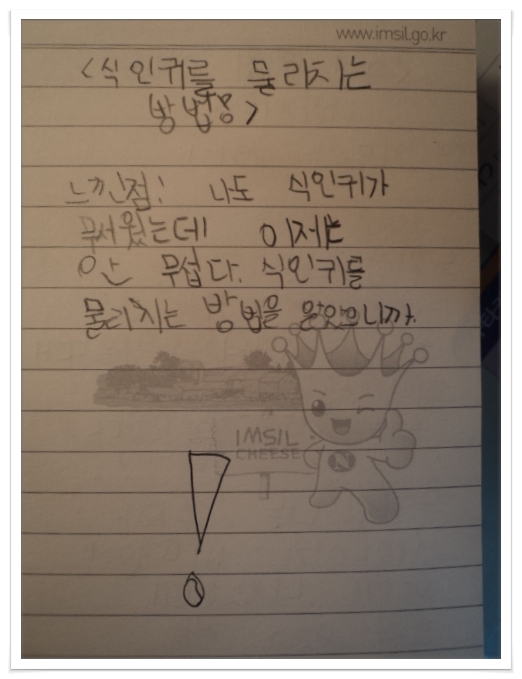 www.imsil.go.kr
<식인귀를 물리치는
방법>
느낀점! 나도 식인귀가
무서웠는데 이제는
안 무섭다. 식인귀를
물리치는 방법을 알았으니까.
IMSIL
CHEESE
N
!